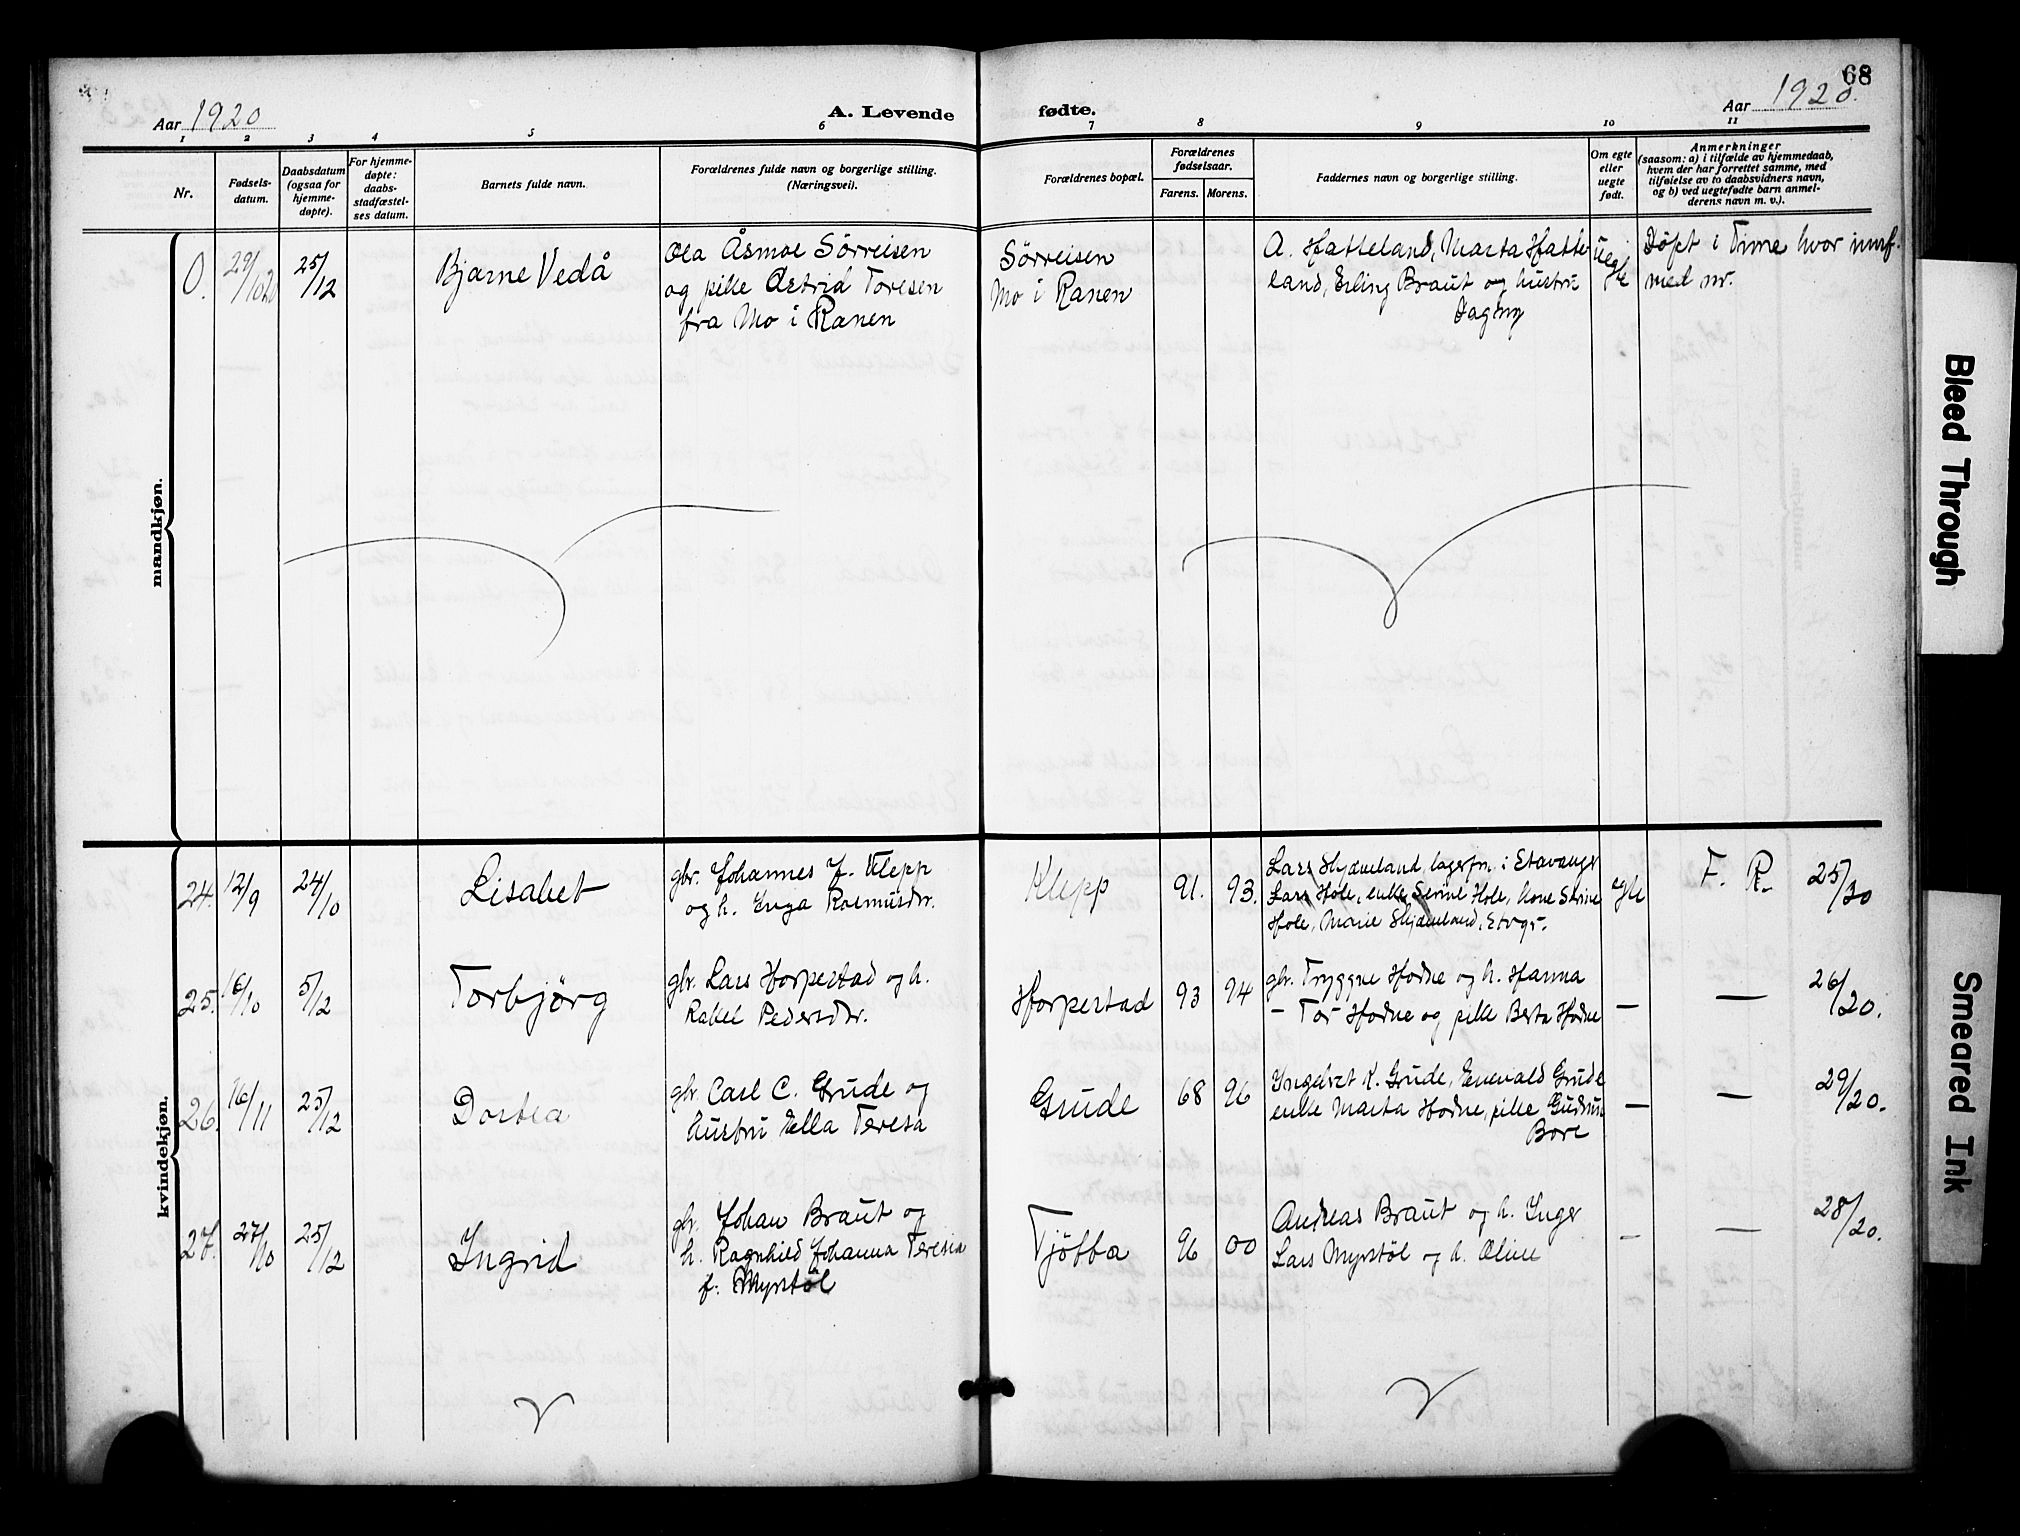 68
Aar 1920
A. Levende fødte.
Aar 1920.
1 2 3 4 5 6 7 8 9 10 11
Nr.
Fødsels-
datum.
Daabsdatum
(ogsaa for
hjemme-
døpte).
For hjemme-
døpte:
daabs-
stadfæstel-
ses datum.
Barnets fulde navn.
Forældrenes fulde navn og borgerlige stilling.
(Næringsvei).
Forældrenes bopæl.
Forældrenes
fødselsaar.
Farens. Morens.
Faddernes navn og borgerlige stilling.
Om egte
eller
uegte
født.
Anmerkninger
(saasom: a) i tilfælde av hjemmedaab,
hvem der har forrettet samme, med
tilføielse av to daabsvidners navn,
og b) ved uegtefødte barn anmel-
derens navn m. v.).
mandkjøn.
0. 29/10 20 25/12 Bjarne Vedå
Ola Åsmoe Sörreisen
og pike Astrid Toresen
fra Mo i Ranen
Sörreisen
Mo i Ranen
A. Hatteland, Marta Hatte
land, Erling Braut og hustru
Dagny
uegte
Döpt i Time hvor innf.
med nr.
kvindekjøn.
24. 12/9 24/10 Lisabet
gbr. Johannes J. Klepp
og h. Inga Rasmusdtr.
Klepp 91. 93.
Lars Skjæveland, lagerfm. i Stavanger
Lars Hole, enke Serine Hole, kone Serine
Hole, Marie Skjæveland, Stvgr.
egte F. R. 25/20
25. 16/10 5/12 Torbjörg
gbr. Lars Horpestad og h.
Rakel Pedersdtr.
Horpestad 93 94
gbr. Tryggve Hodne og h. Hanna
- Tor Hodne og pike Berta Hodne
— — 26/20.
26. 16/11 25/12 Dortea
gbr. Carl C. Grude og
hustru Ella Teresa
Grude 68 96
Ingebret K. Grude, Enevald Grude
enke Marta Hodne, pike Gudrun
Bore
— — 29/20.
27. 27/10 25/12 Ingrid
gbr. Johan Braut og
h. Ragnhild Johanna Teresia
f. Myrstöl
Tjötta 96 00
Andreas Braut og h. Inger
Lars Myrstöl og h. Oline
— — 28/20.
Bleed Through
Smeared Ink